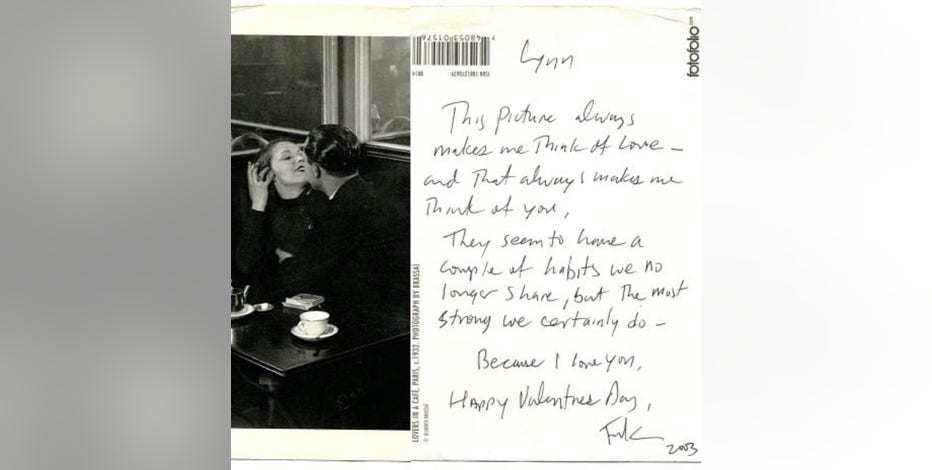 7 48053 01576
fotofolio.com
Lynn
This picture always
makes me Think of Love –
and That always makes me
Think of you,
They seem to have a
couple of habits we no
longer share, but The most
strong we certainly do –
Because I love you,
Happy Valentines Day,
2003
LOVERS IN A CAFE, PARIS, c.1932. PHOTOGRAPH BY BRASSAÏ
© GILBERTE BRASSAÏ